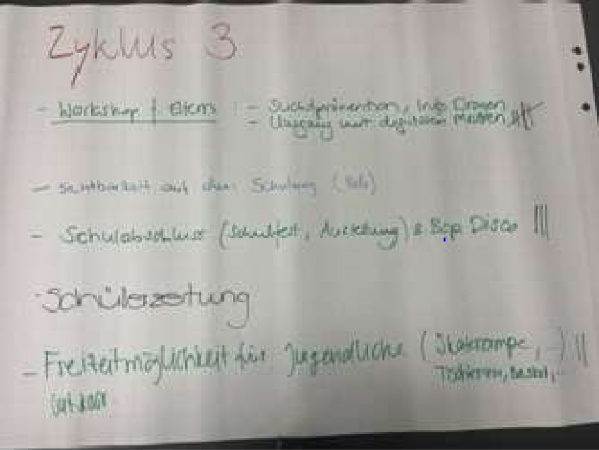 Zyklus 3
- Workshop f. Eltern : - Suchtprävention, Info Drogen
- Umgang mit digitalen Medien
- Sichtbarkeit auf dem Schulweg
- Schulabschluss (Schulfest, Ausstellung) & Bop Disco |||
Schülerzeitung
- Freizeitmöglichkeit für Jugendliche (Skaterampe, ...) ||